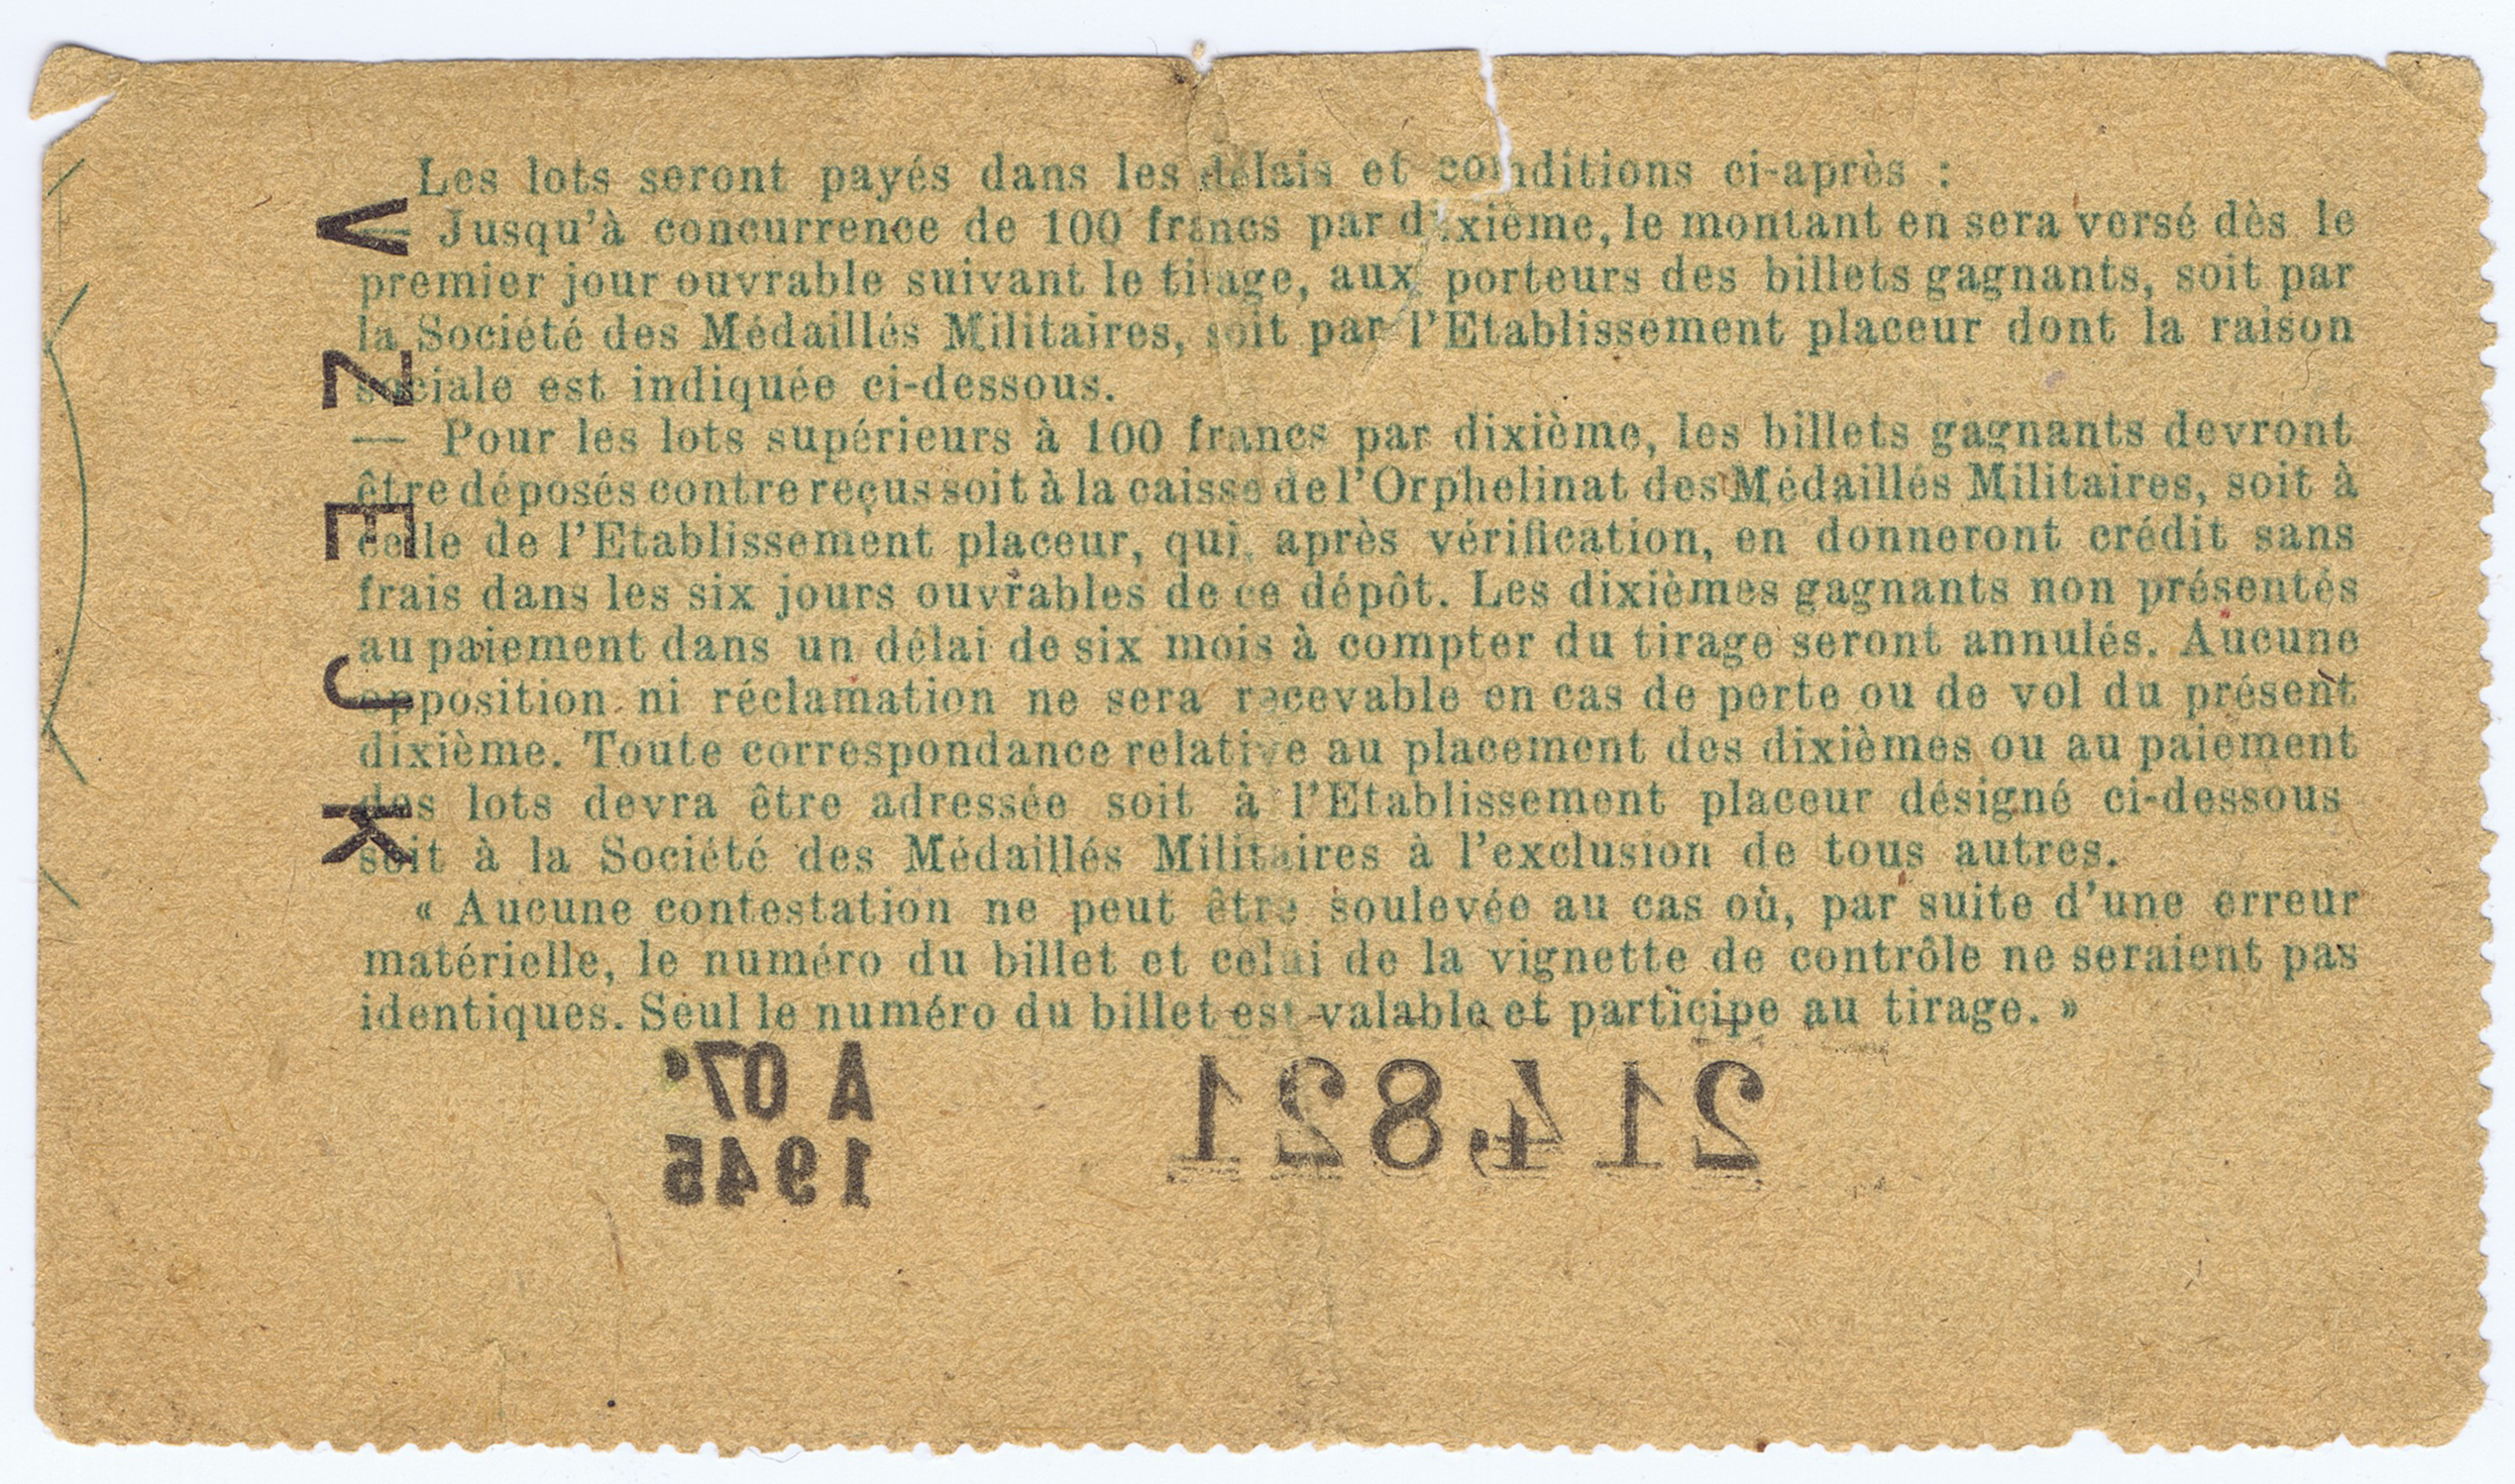 Les lots seront payés dans les délais et conditions ci-après :
— Jusqu'à concurrence de 100 francs par dixième, le montant en sera versé dès le
premier jour ouvrable suivant le tirage, aux porteurs des billets gagnants, soit par
la Société des Médaillés Militaires, soit par l'Etablissement placeur dont la raison
sociale est indiquée ci-dessous.
— Pour les lots supérieurs à 100 francs par dixième, les billets gagnants devront
être déposés contre reçus soit à la caisse de l'Orphelinat des Médaillés Militaires, soit à
celle de l'Etablissement placeur, qui, après vérification, en donneront crédit sans
frais dans les six jours ouvrables de ce dépôt. Les dixièmes gagnants non présentés
au paiement dans un délai de six mois à compter du tirage seront annulés. Aucune
opposition ni réclamation ne sera recevable en cas de perte ou de vol du présent
dixième. Toute correspondance relative au placement des dixièmes ou au paiement
des lots devra être adressée soit à l'Etablissement placeur désigné ci-dessous
soit à la Société des Médaillés Militaires à l'exclusion de tous autres.
« Aucune contestation ne peut être soulevée au cas où, par suite d'une erreur
matérielle, le numéro du billet et celui de la vignette de contrôle ne seraient pas
identiques. Seul le numéro du billet est valable et participe au tirage. »
V Z E J K
214,821
A 07e
1945